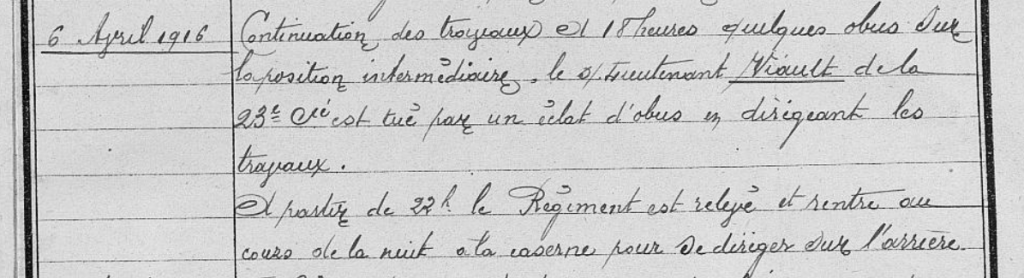 6 Avril 1916 Continuation des travaux A 18 heures quelques obus sur
la position intermédiaire, le s/Lieutenant Viault de la
23e Cie est tué par un éclat d'obus en dirigeant les
travaux.
A partir de 22h. le Régiment est relevé et rentre au
cours de la nuit à la caserne pour se diriger sur l'arrière.